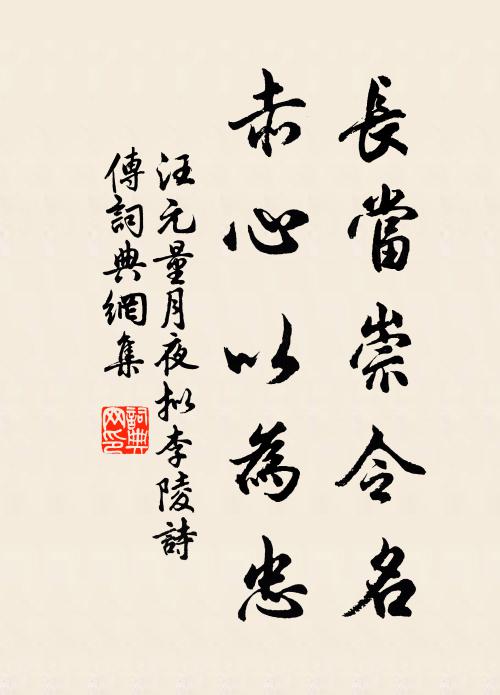 長當崇令名
赤心以為忠
汪元量月夜拟李陵詩
傳詞典網集
詞典
网印